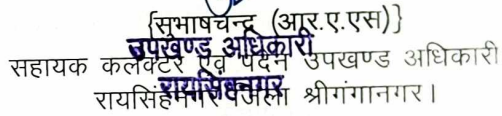 {सुभाषचन्द्र (आर.ए.एस)}
उपखण्ड अधिकारी
सहायक कलेक्टर एवं पदेन उपखण्ड अधिकारी
रायसिंहनगर
रायसिंहनगर जिला श्रीगंगानगर।